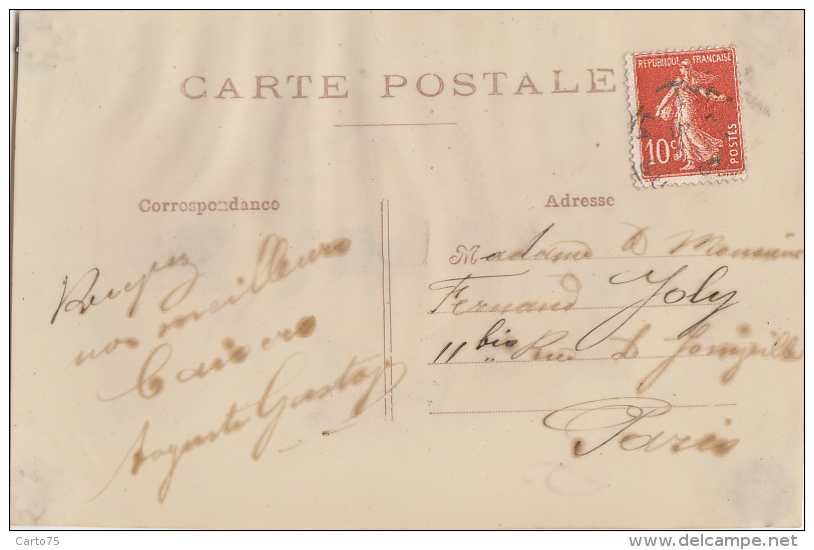 CARTE POSTALE
REPUBLIQUE FRANÇAISE
10c
POSTES
Correspondance
Adresse
Madame & Monsieur
Fernand Joly
11 bis Rue de Joinville
Paris
Reçevez
nos meilleurs
Baisers
Auguste Gaston
Carto75
www.delcampe.net